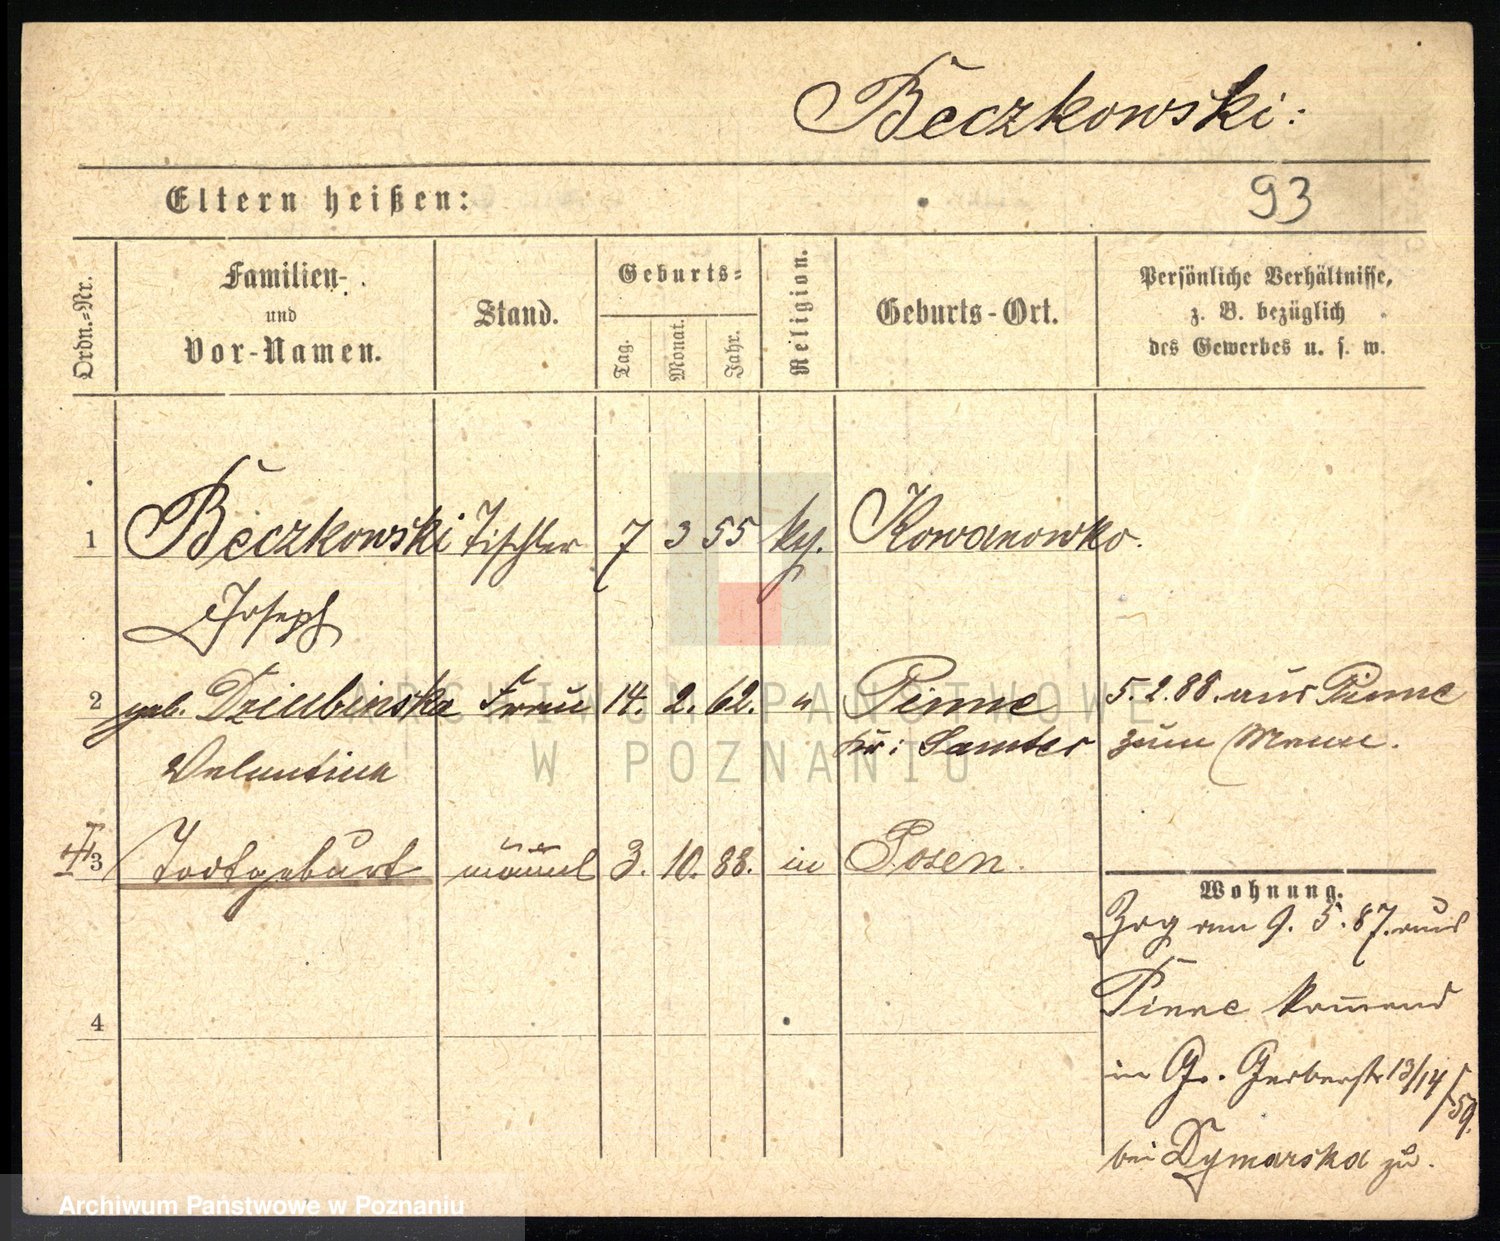 Beczkowski:
Eltern heißen:
93
Ordn.-Nr.
Familien- und Vor-Namen.
Stand.
Geburts-
Tag.
Monat.
Jahr.
Religion.
Geburts-Ort.
Persönliche Verhältnisse,
z. B. bezüglich
des Gewerbes u. s. w.
1 Beczkowski Tischler 7 3 55 kth. Kowanowko.
Joseph
2 geb. Dziubinska Frau 14. 2. 62. " Pinne 5.2.88. aus Pinne
Valentina Kr: Samter zum Manne.
3 Todtgeburt männl 3. 10. 88. in Posen.
Wohnung.
Zog am 9. 5. 87. aus
Pinne kommend
4
in Gr. Gerberstr 13/14
bei Dymarska zu.
ARCHIWUM PAŃSTWOWE
W POZNANIU
Archiwum Państwowe w Poznaniu